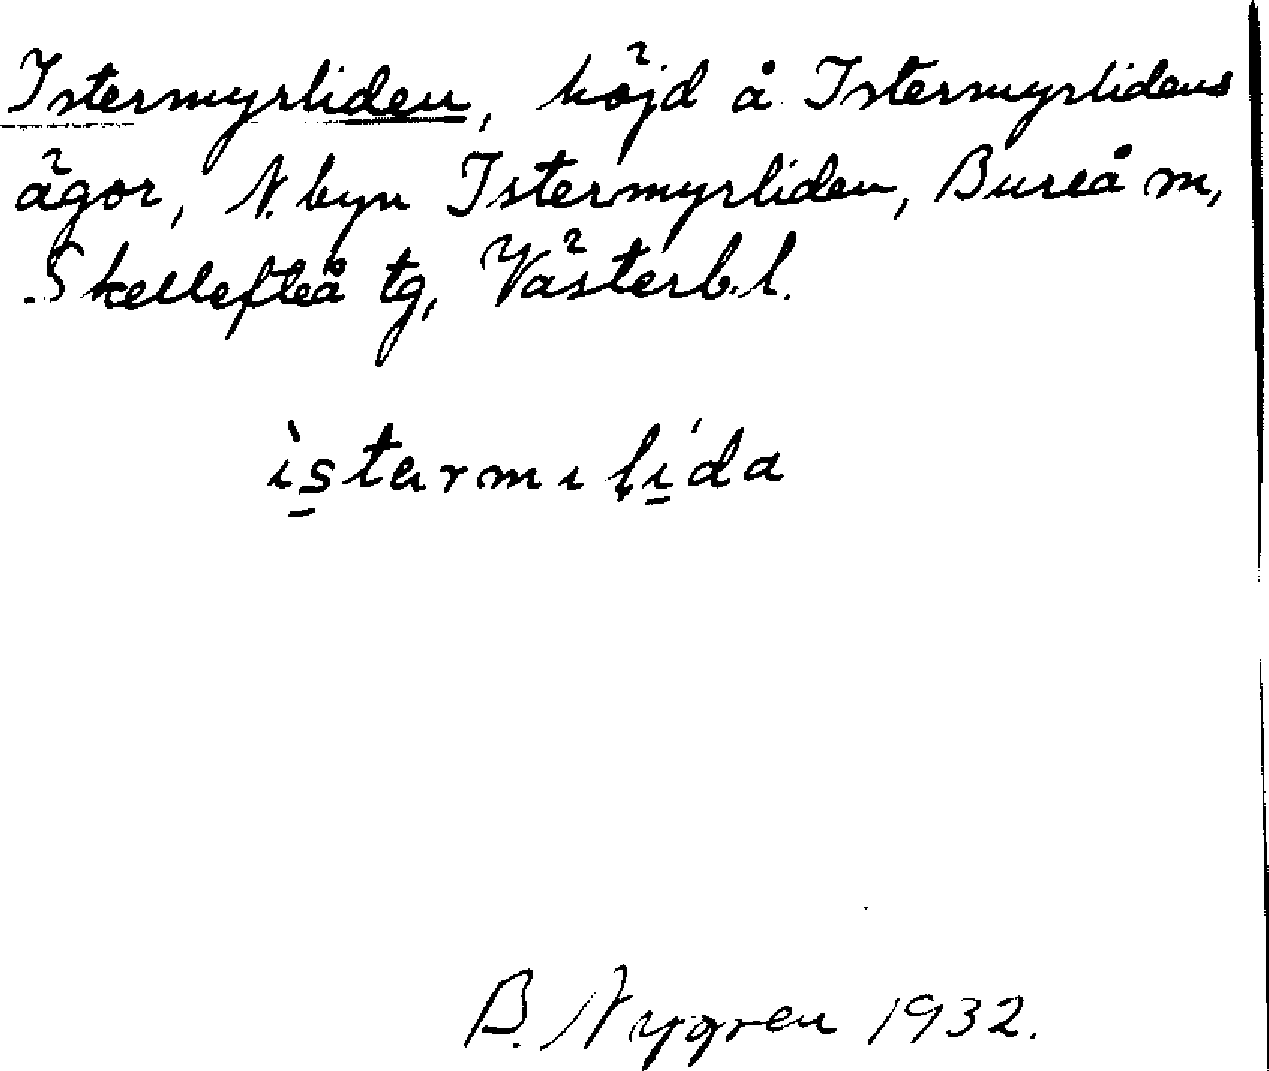 Istermyrliden, höjd å Istermyrlidens
ägor, N. byn Istermyrliden, Bureå m,
Skellefteå tg, Västerb.l.
ìstərmɩ lída
B. Nygren 1932.